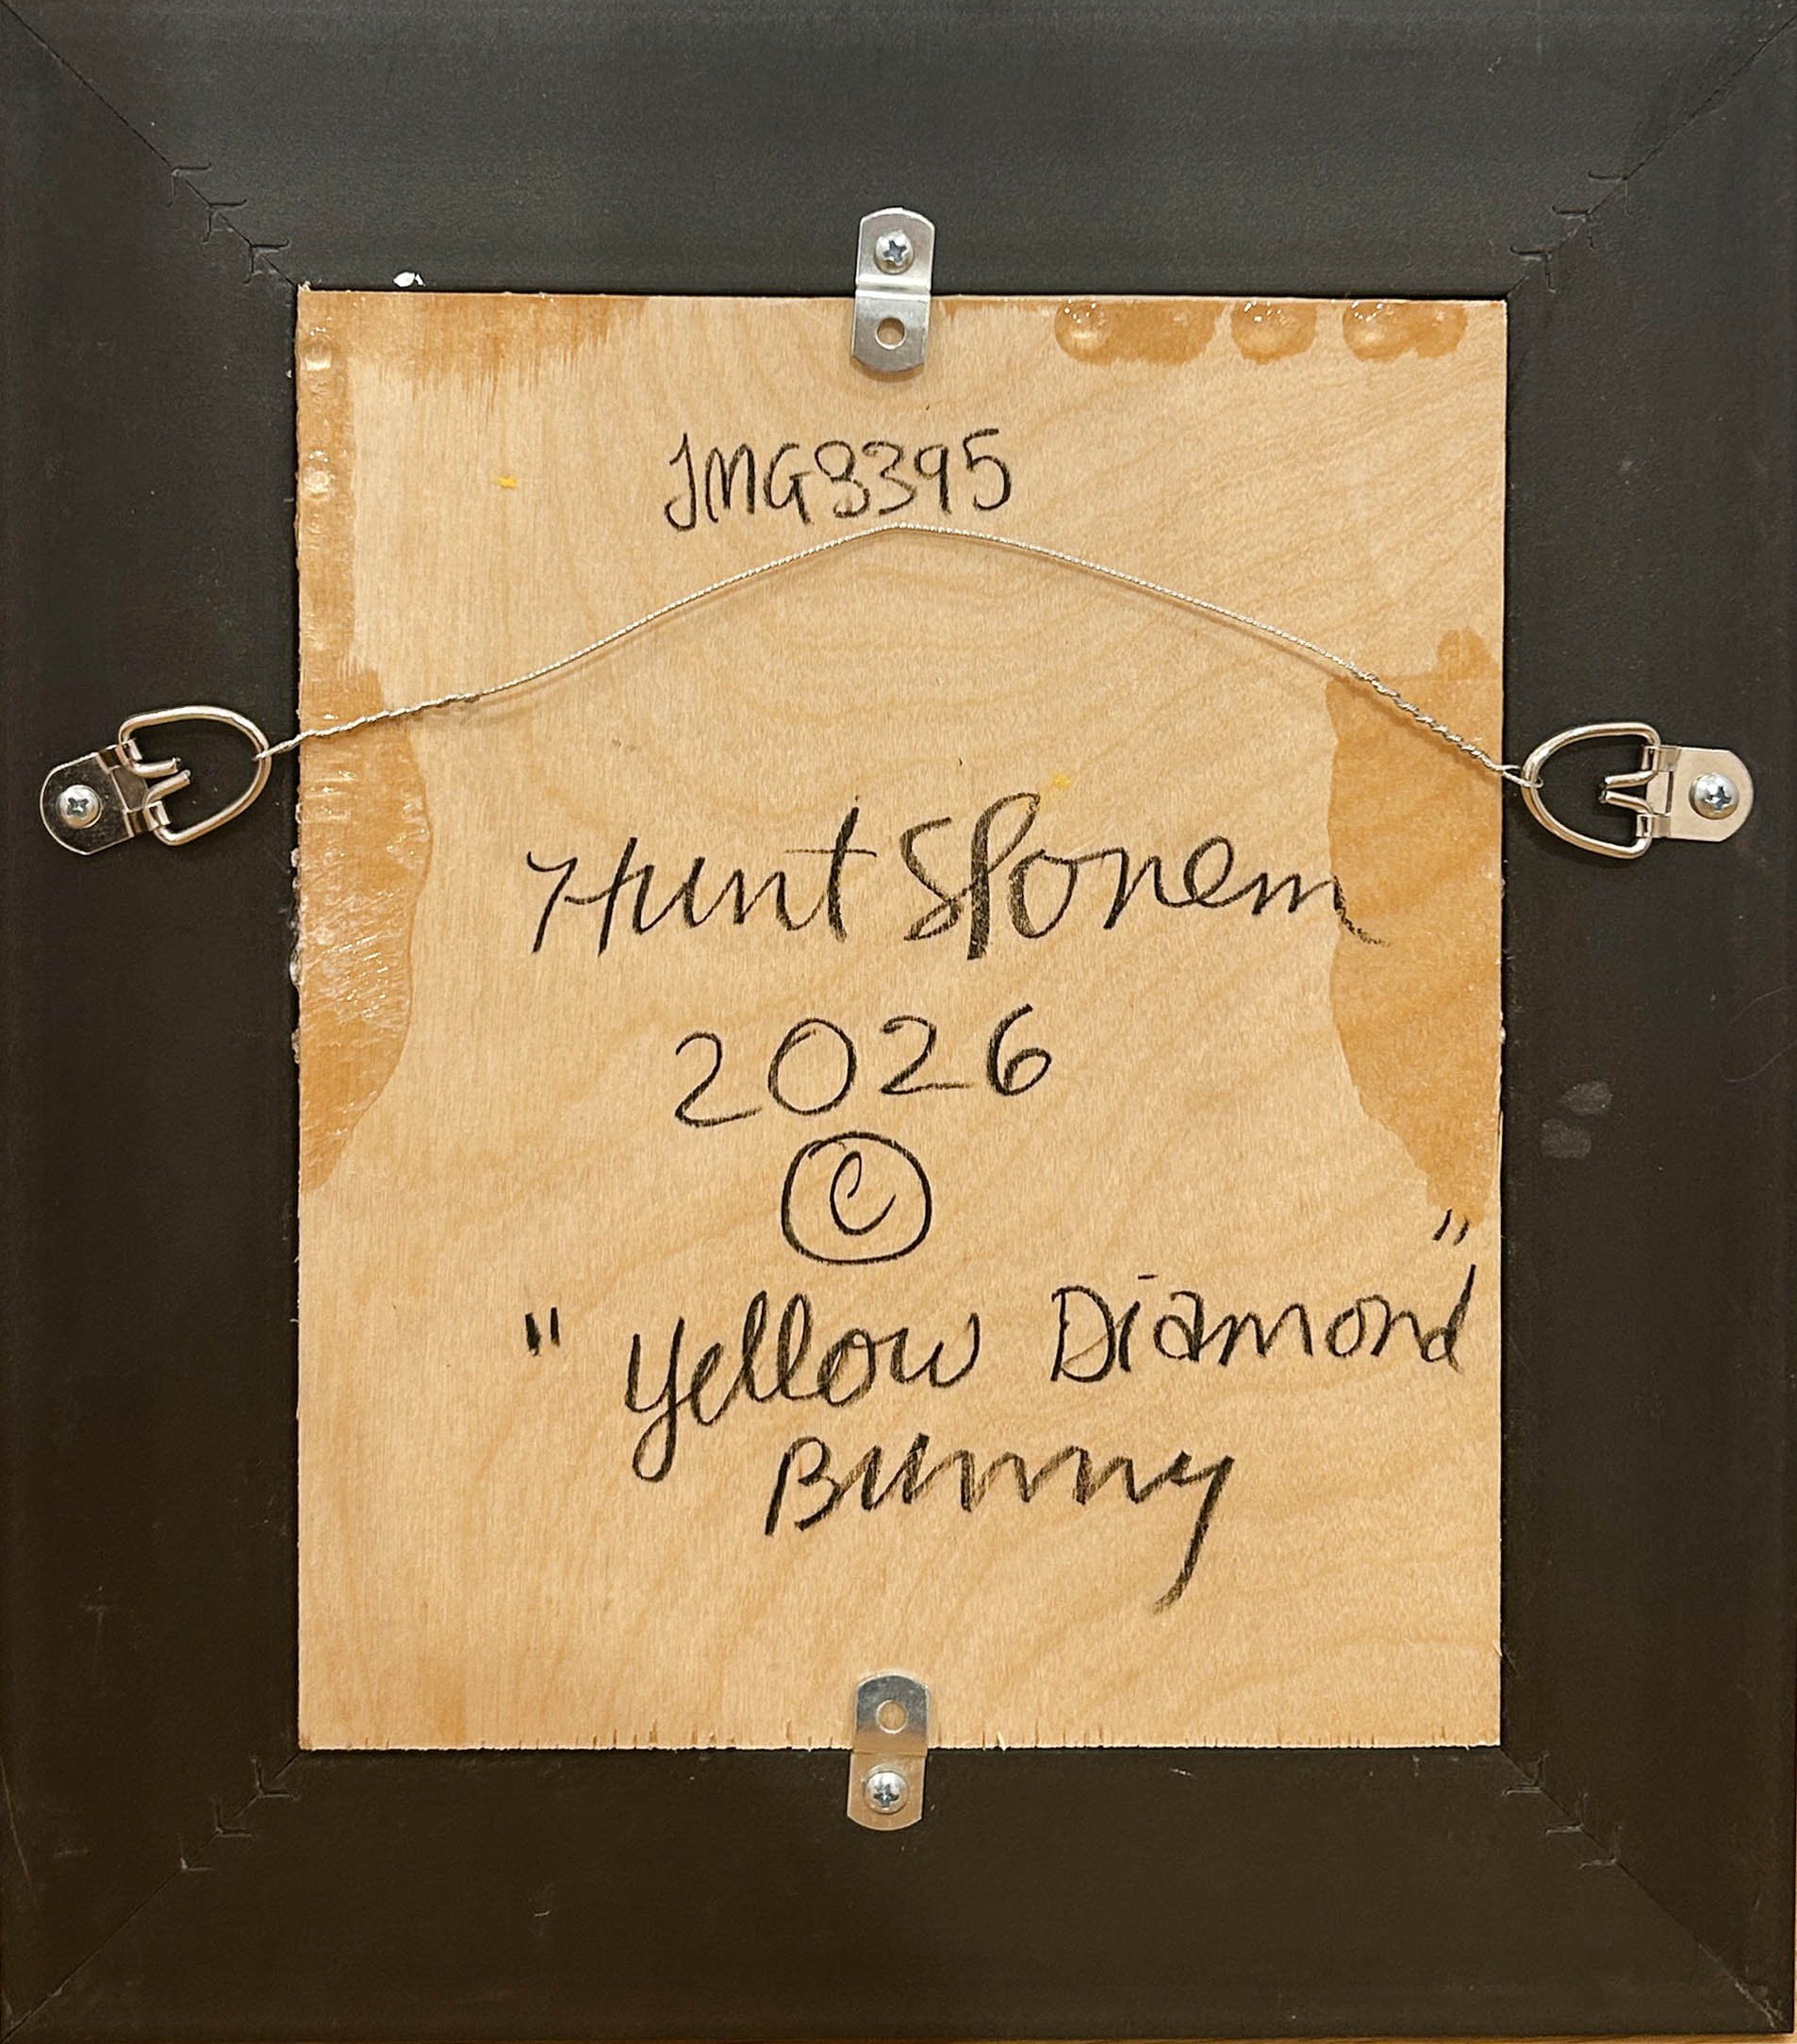 JMG3395
Hunt Slonem
2026
©
"Yellow Diamond"
Bunny